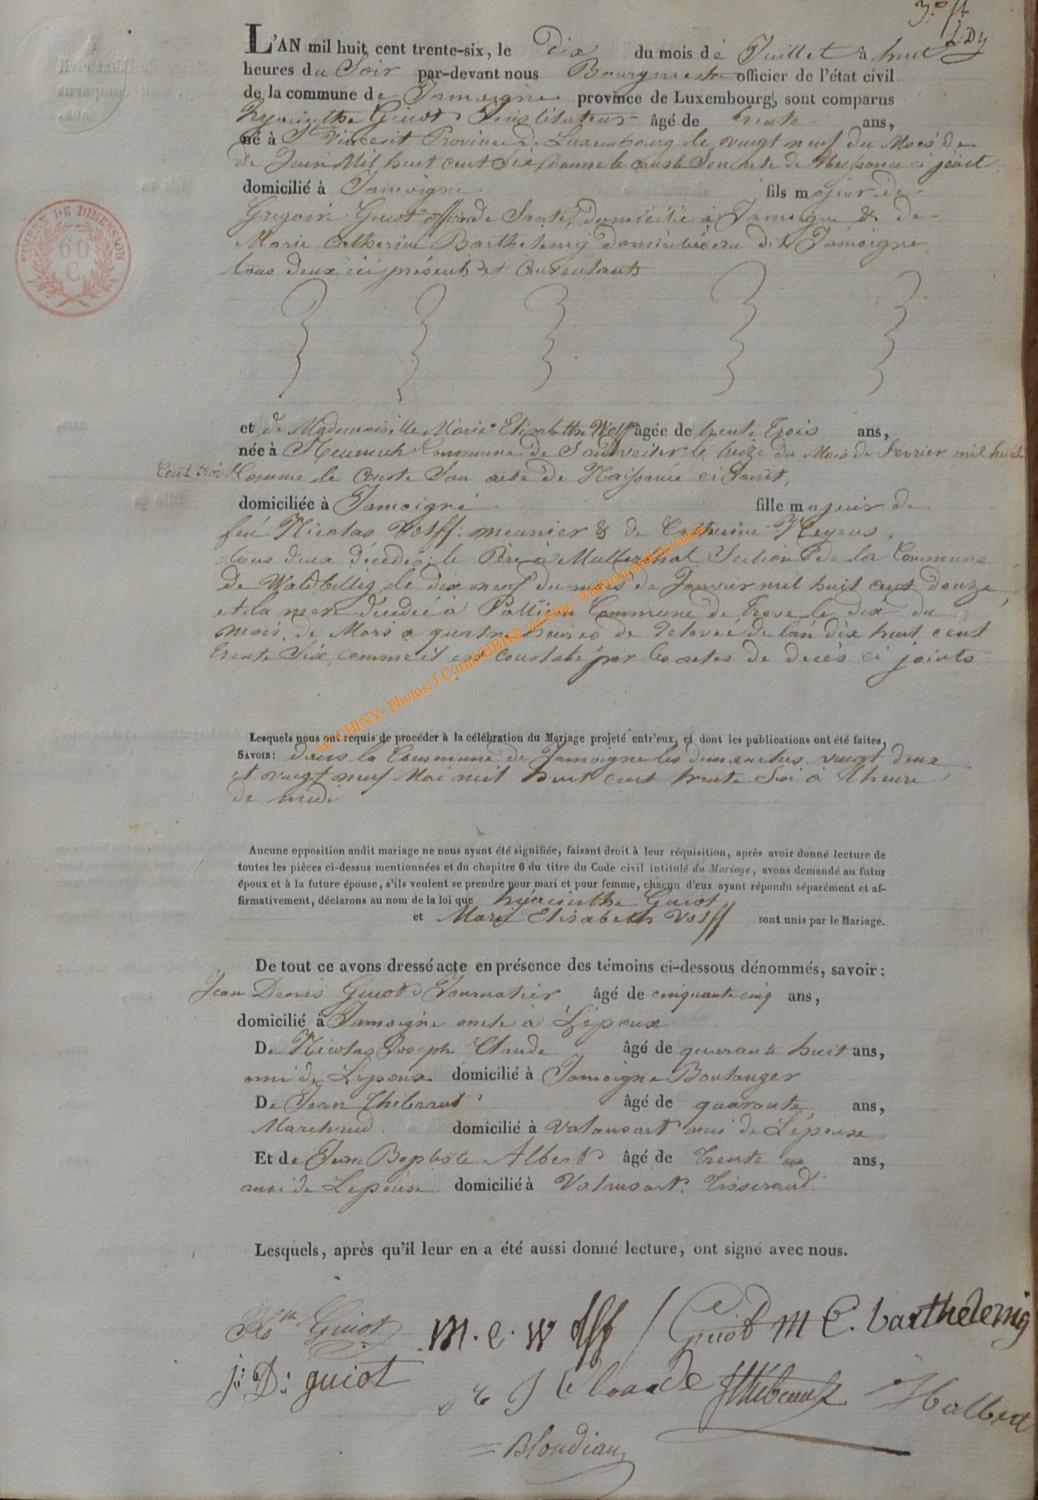 3.e ft
L'AN mil huit cent trente-six, le dix du mois de Juillet à huit
heures du Soir par-devant nous Bourgmestre officier de l'état civil
de la commune de Jamoigne province de Luxembourg, sont comparus
Hyacinthe Guiot Instituteur âgé de trente ans,
né à St Vincent Province de Luxembourg le vingt neuf du Mois de
de Juin Mil huit cent Six comme le conste Son acte de Naissance ci joint
domicilié à Jamoigne fils majeur de
Gregoire Guiot officier de Santé, domicilié à Jamoigne & de
Marie Catherine Barthelemy domiciliée au dit Jamoigne
tous deux ici présents et Consentants
et de Mademoiselle Marie Elizabeth Wolff âgée de trente trois ans,
née à Commune de le treize du Mois de Fevrier mil huit
Cent trois Comme le Conste Son acte de Naissance ci Joint,
domiciliée à Jamoigne fille majeure de
feu Nicolas Wolff meunier & de Catherine Meyers
tous deux décédés le Père à Mullerthal Section de la Commune
de Waldbillig le dix neuf du mois de Janvier mil huit cent douze
et la mere décédée à Commune de le dix du
mois de Mars a quatre heures de relevée de lan dix huit cent
trente Six comme il est Constaté par les actes de decès ci joints
Lesquels nous ont requis de procéder à la célébration du Mariage projeté entr'eux, et dont les publications ont été faites,
SAVOIR: dans la Commune de Jamoigne les dimanches vingt deux
et vingt neuf Mai mil huit cent trente Six à l'heure
de midi
Aucune opposition audit mariage ne nous ayant été signifiée, faisant droit à leur réquisition, après avoir donné lecture de
toutes les pièces ci-dessus mentionnées et du chapitre 6 du titre du Code civil intitulé du Mariage, avons demandé au futur
époux et à la future épouse, s'ils veulent se prendre pour mari et pour femme, chacun d'eux ayant répondu séparément et af-
firmativement, déclarons au nom de la loi que hyacinthe Guiot
et Marie Elisabeth Wolff sont unis par le Mariage.
De tout ce avons dressé acte en présence des témoins ci-dessous dénommés, savoir:
Jean Denis Guiot Journalier âgé de cinquante cinq ans,
domicilié à Jamoigne oncle à L'époux
De Nicolas Joseph Claude âgé de quarante huit ans,
ami de L'époux domicilié à Jamoigne Boulanger
De Jean Thibeaut âgé de quarante ans,
Marchand domicilié à Valansart ami de L'épouse
Et de Jean Baptiste Albert âgé de trente ans,
ami de Lépouse domicilié à Valansart Tisserand
Lesquels, après qu'il leur en a été aussi donné lecture, ont signé avec nous.
Guiot M. e. Wolff Guiot M C. barthelemy
j: D: guiot N J Claude JThibeault Halbert
Blondiau
TIMBRE DE DIMENSION
60
C.
AC CHINY - Photos: J. Cornil